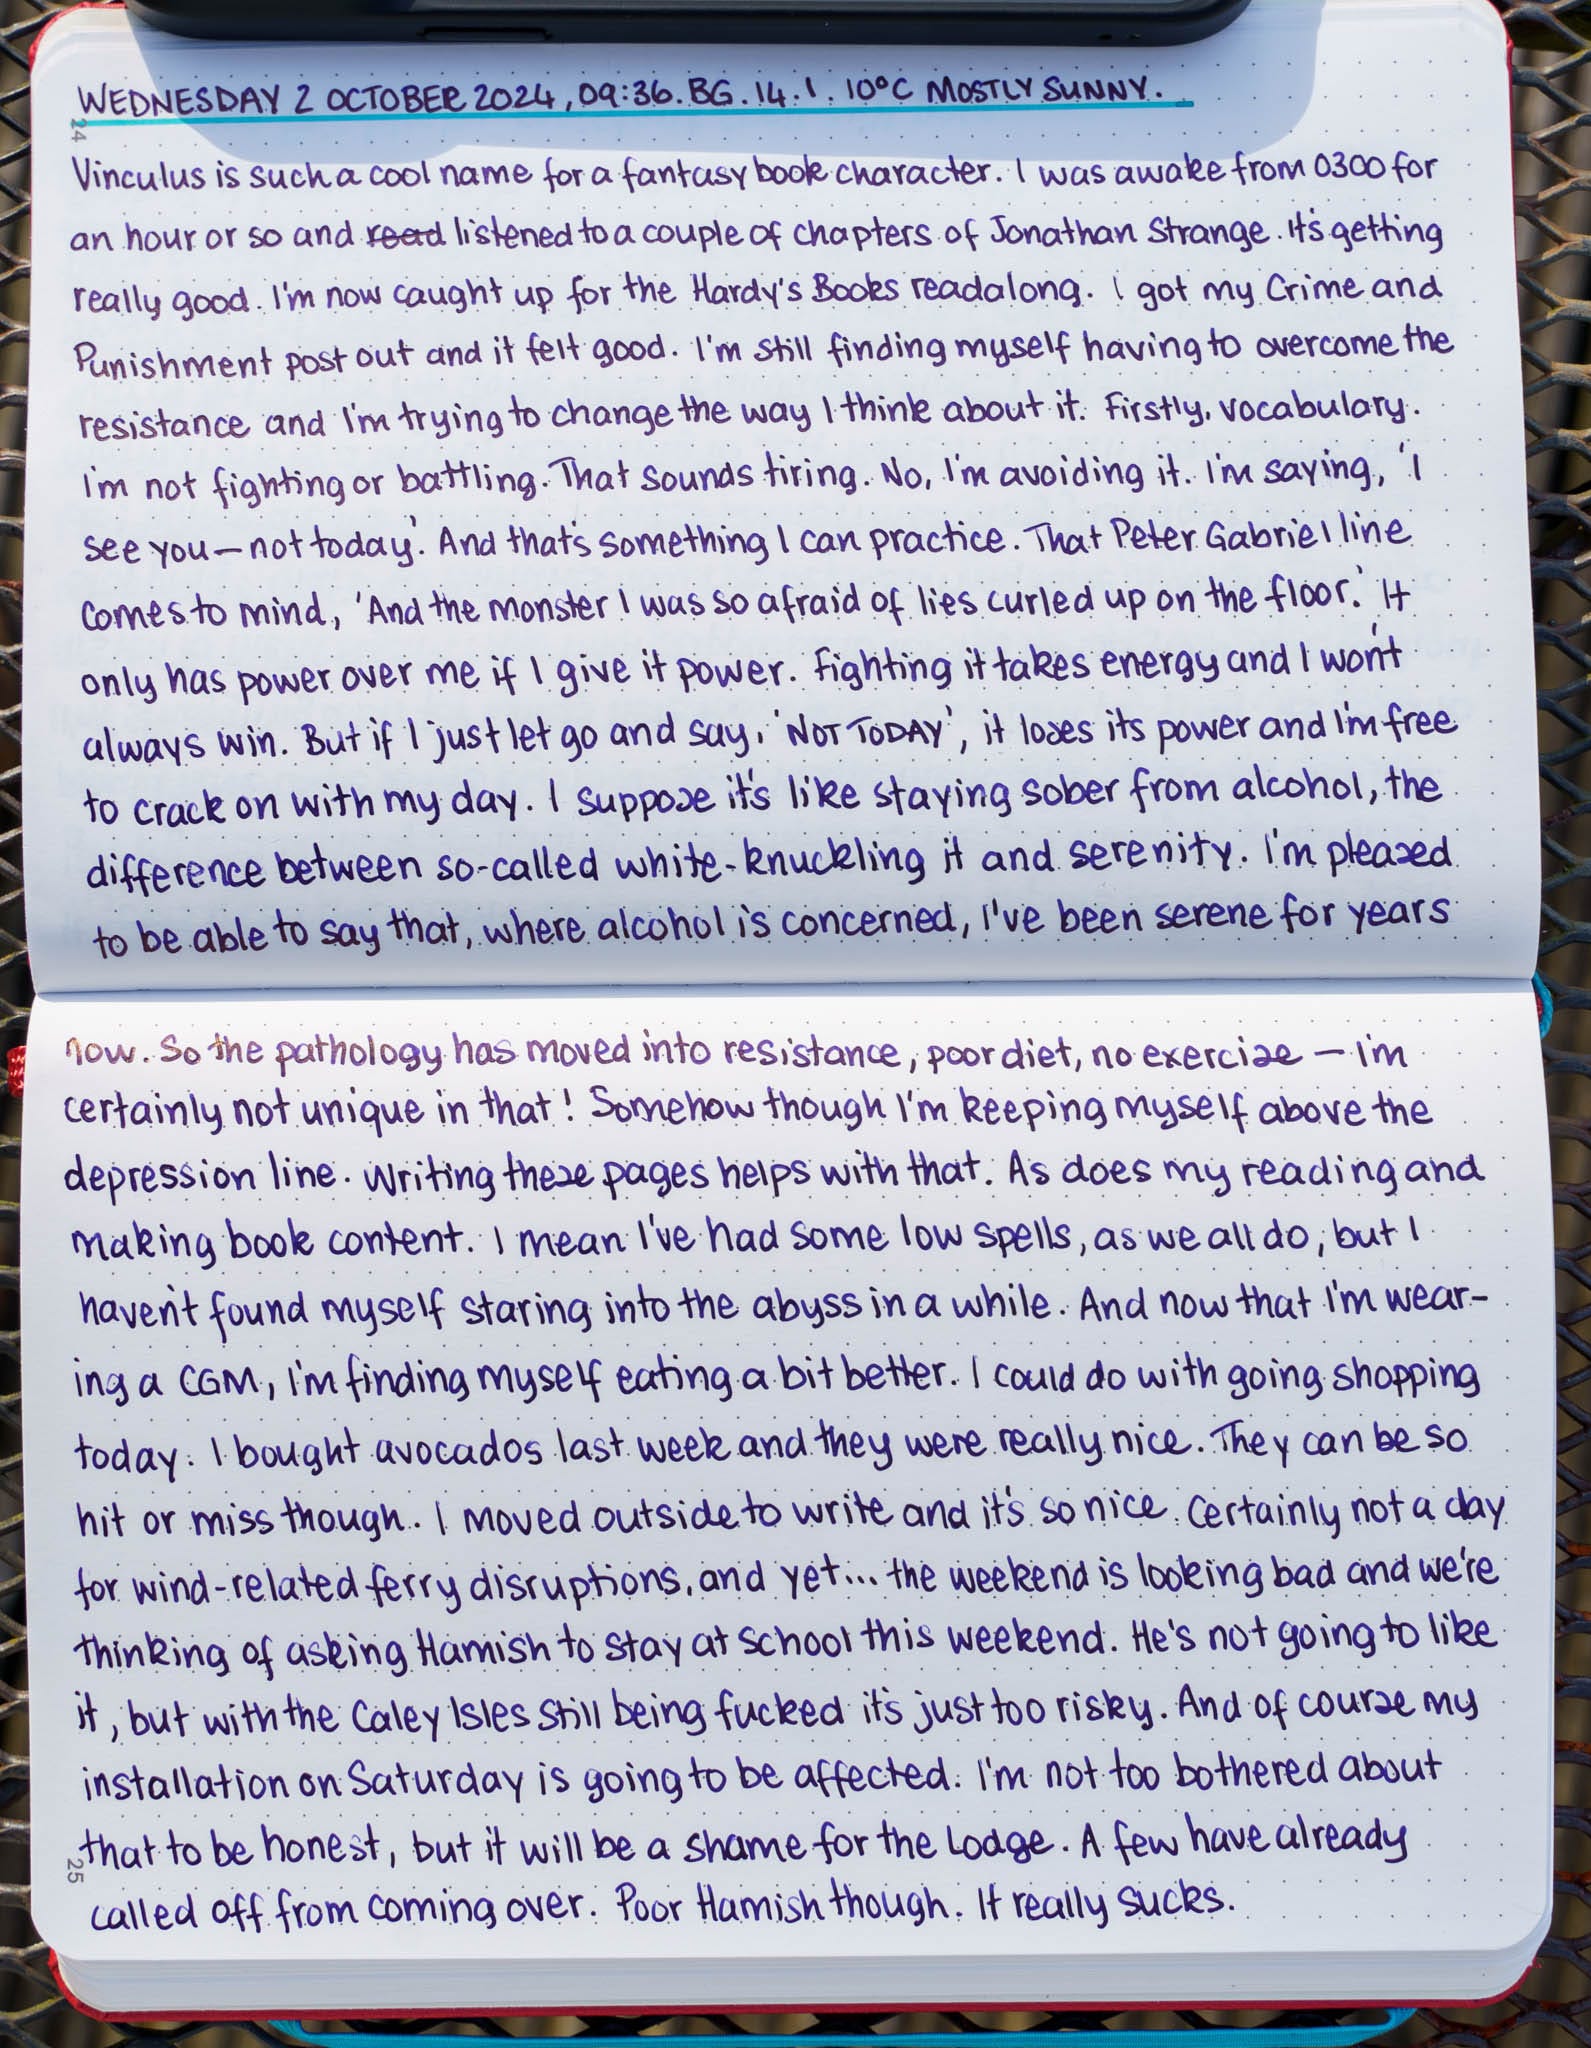 WEDNESDAY 2 OCTOBER 2024, 09:36. BG. 14.1. 10°C MOSTLY SUNNY.
24
Vinculus is such a cool name for a fantasy book character. I was awake from 0300 for
an hour or so and read listened to a couple of chapters of Jonathan Strange. It's getting
really good. I'm now caught up for the Hardy's Books readalong. I got my Crime and
Punishment post out and it felt good. I'm still finding myself having to overcome the
resistance and I'm trying to change the way I think about it. Firstly, vocabulary.
I'm not fighting or battling. That sounds tiring. No, I'm avoiding it. I'm saying, 'I
see you — not today'. And that's something I can practice. That Peter Gabriel line
comes to mind, 'And the monster I was so afraid of lies curled up on the floor.' It
only has power over me if I give it power. Fighting it takes energy and I won't
always win. But if I just let go and say, 'NOT TODAY', it loses its power and I'm free
to crack on with my day. I suppose it's like staying sober from alcohol, the
difference between so-called white-knuckling it and serenity. I'm pleased
to be able to say that, where alcohol is concerned, I've been serene for years
now. So the pathology has moved into resistance, poor diet, no exercise — I'm
certainly not unique in that! Somehow though I'm keeping myself above the
depression line. Writing these pages helps with that. As does my reading and
making book content. I mean I've had some low spells, as we all do, but I
haven't found myself staring into the abyss in a while. And now that I'm wear-
ing a CGM, I'm finding myself eating a bit better. I could do with going shopping
today. I bought avocados last week and they were really nice. They can be so
hit or miss though. I moved outside to write and it's so nice. Certainly not a day
for wind-related ferry disruptions, and yet... the weekend is looking bad and we're
thinking of asking Hamish to stay at school this weekend. He's not going to like
it, but with the Caley Isles still being fucked it's just too risky. And of course my
installation on Saturday is going to be affected. I'm not too bothered about
that to be honest, but it will be a shame for the Lodge. A few have already
25
called off from coming over. Poor Hamish though. It really sucks.